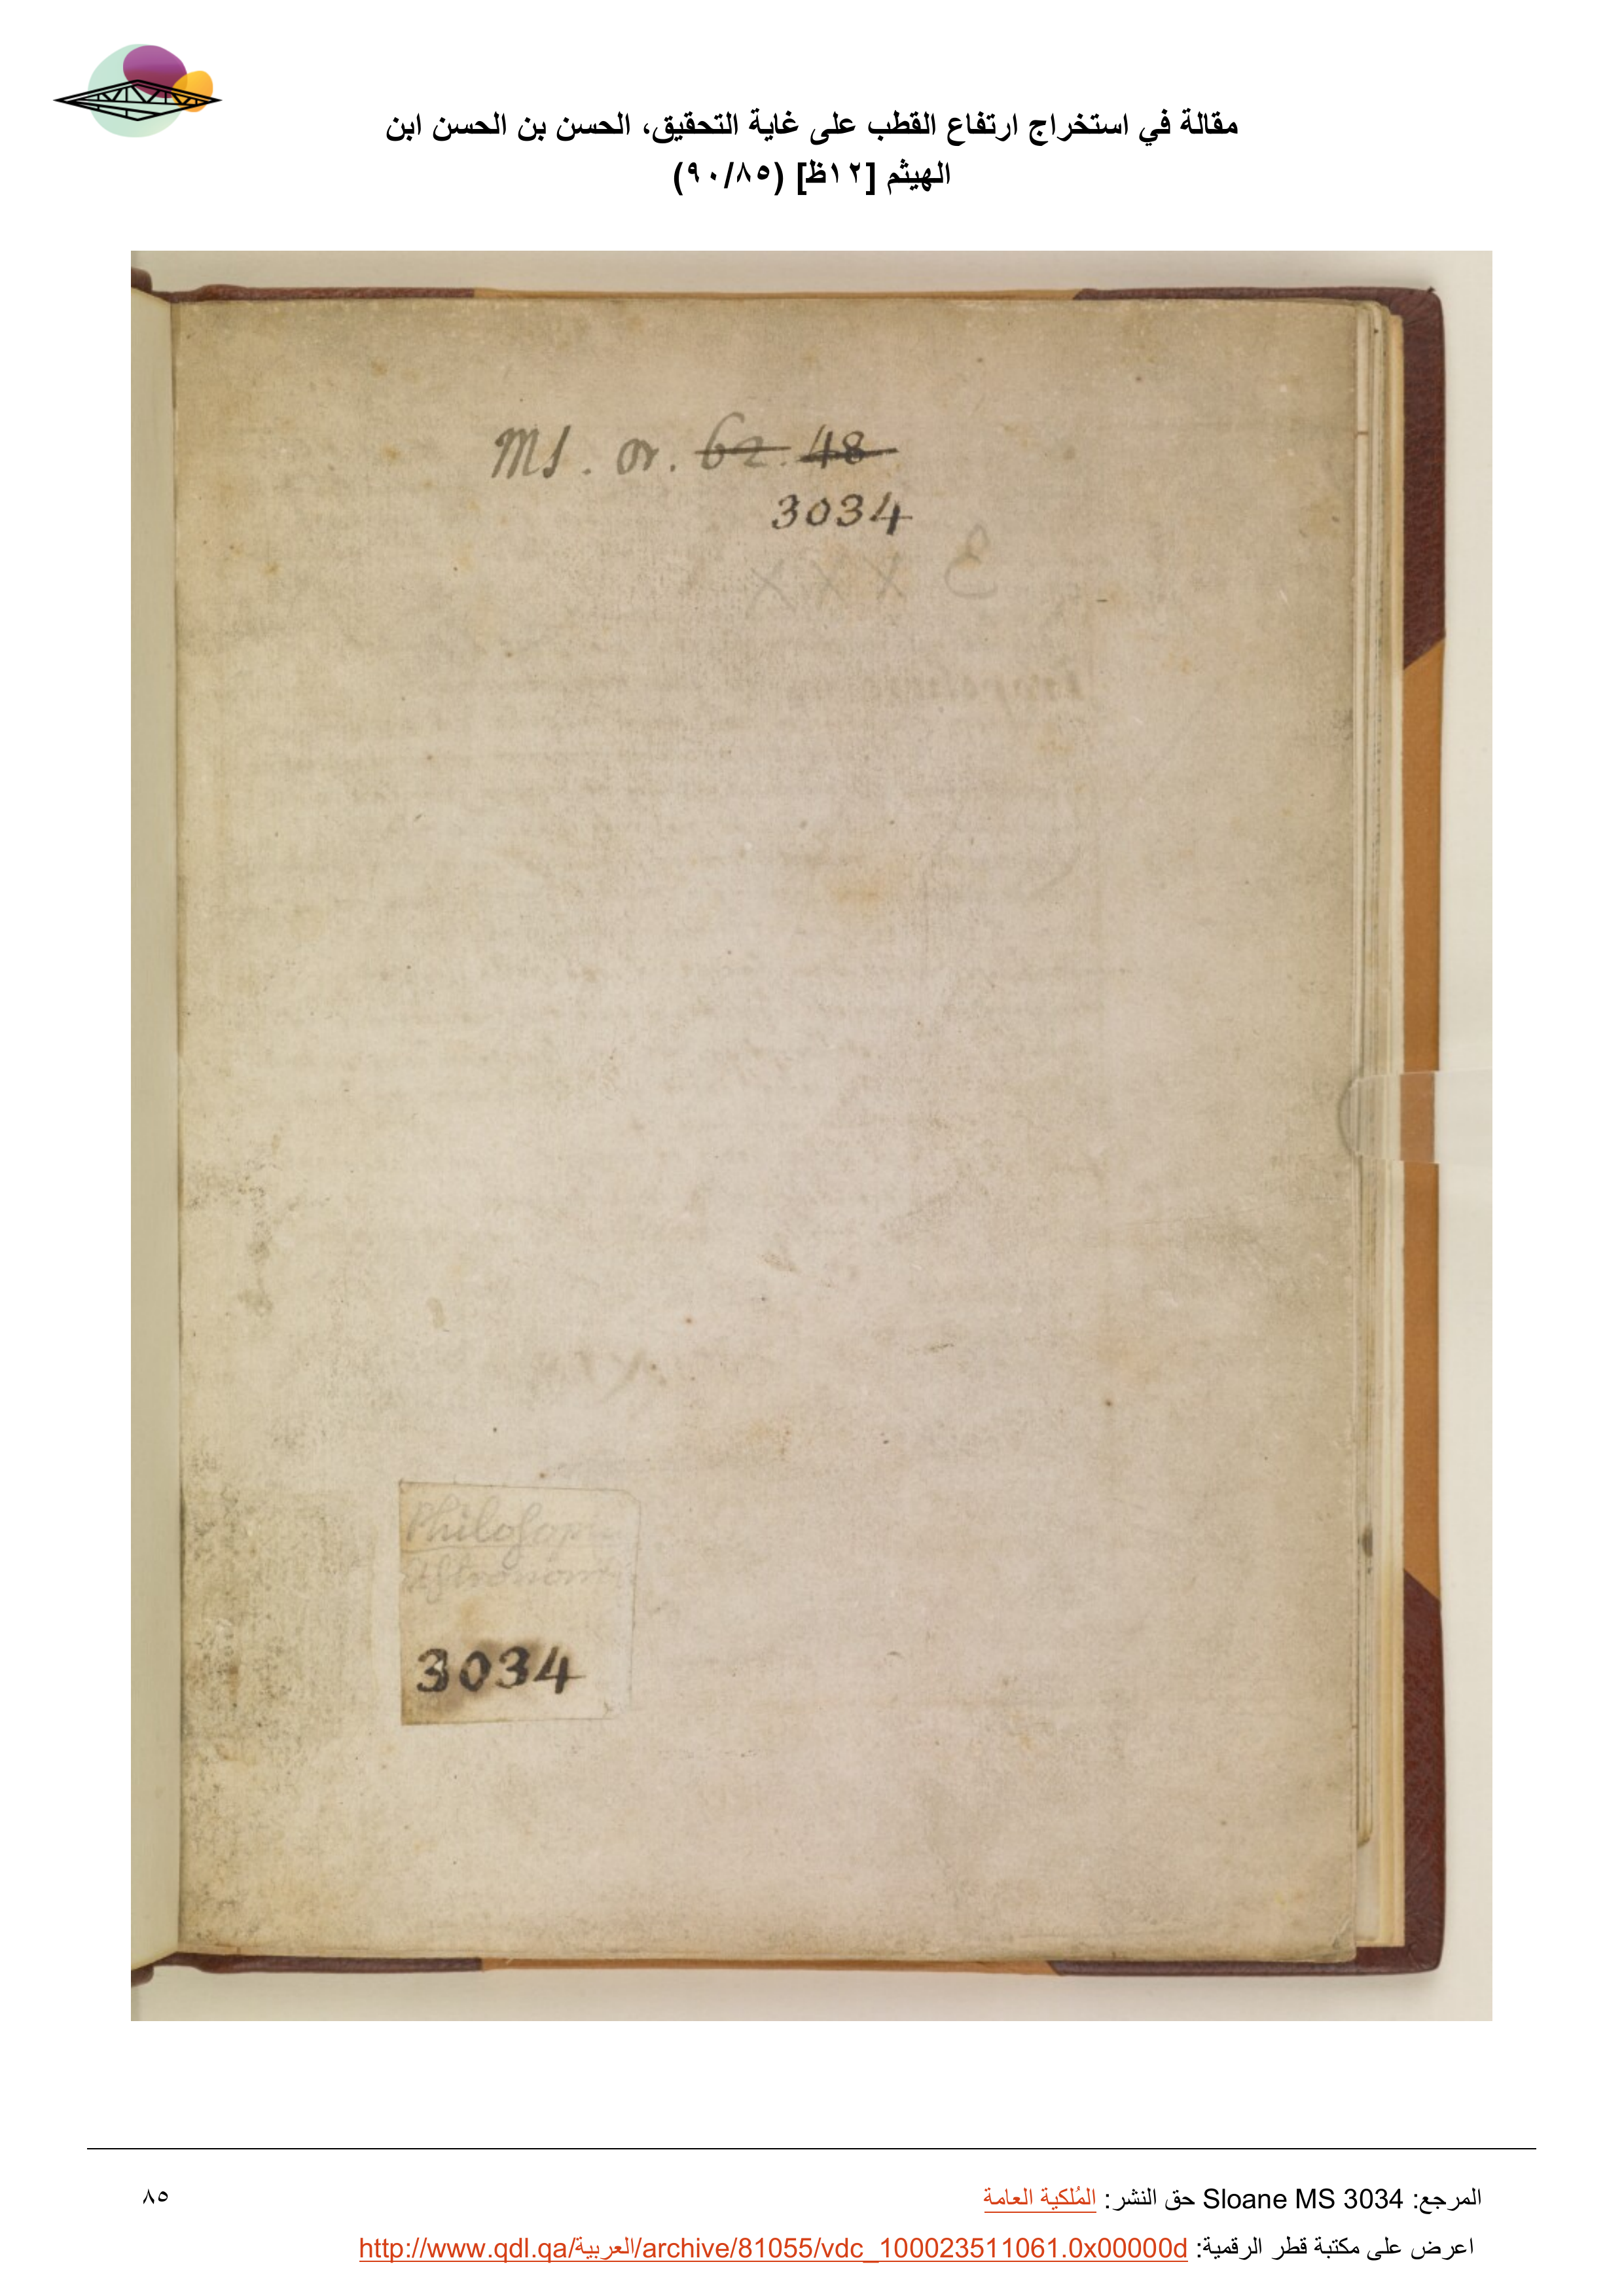 مقالة في استخراج ارتفاع القطب على غاية التحقيق، الحسن بن الحسن ابن
الهيثم [١٢ظ] (٩٠/٨٥)
Ms. or. 62. 48
3034
3034
المرجع: Sloane MS 3034 حق النشر: المُلكية العامة
٨٥
اعرض على مكتبة قطر الرقمية: http://www.qdl.qa/العربية/archive/81055/vdc_100023511061.0x00000d